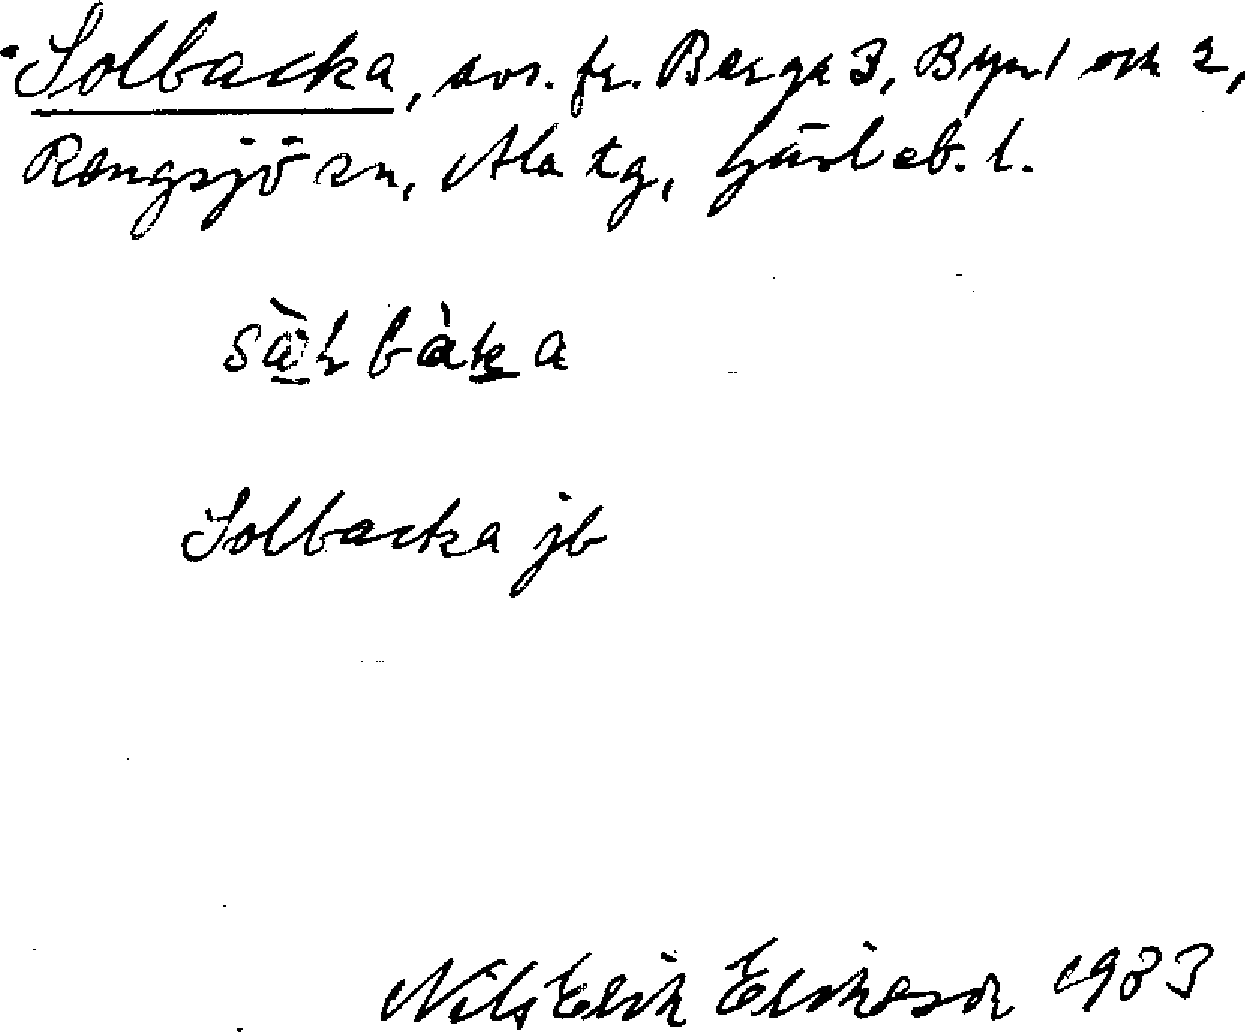 Solbacka, avs. fr. Berga 3, Byn 1 och 2,
Rengsjö sn, Ala tg, Gävleb. l.
Solbacka jb
Nils Erik Eriksson 1983